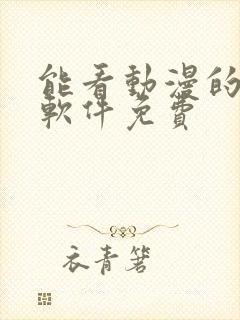 能看動漫的
軟件免費
衣青箬